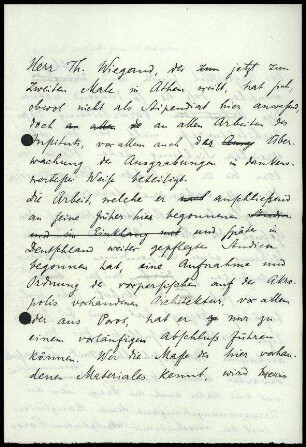 Herr Th. Wiegand, der zum jetzt zum
zweiten Male in Athen weilt, hat sich,
obwol nicht als Stipendiat hier anwesend,
doch an allen de an allen Arbeiten des
Instituts, vor allem auch der Ueber-
wachung der Ausgrabungen in dankens-
wertester Weise beteiligt.
Die Arbeit, welche er anschliessend
an seine früher hier begonnenen Studien
und im Einklang mit und später in
Deutschland weiter gepflegten Studien
begonnen hat, eine Aufnahme und
Ordnung der vorpersischen auf der Akro-
polis vorhandenen Architektur, vor allem
der aus Poros, hat er nur zu
einem vorläufigen Abschluss führen
können. Wer die Masse des hier vorhan-
denen Materiales kennt, wird Herrn